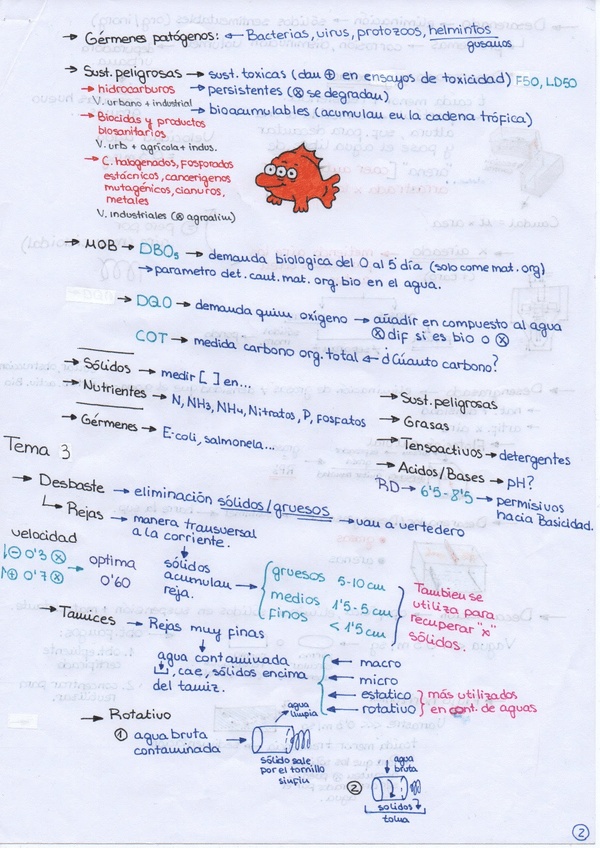 → Gérmenes patógenos: ← Bacterias, virus, protozoos, helmintos
gusanos
→ Sust. peligrosas → sust. toxicas (dan ⊕ en ensayos de toxicidad) F50, LD50
→ hidrocarburos → persistentes (⊗ se degradan)
V. urbano + industrial → bioacumulables (acumulan en la cadena trófica)
→ Biocidas y productos
biosanitarios
V. urb + agrícola + indus.
→ C. halogenados, fosforados
estácnicos, cancerigenos
mutagénicos, cianuros,
metales
V. industriales (⊗ agroalim)
→ MOB → DBO5 → demanda biologica del 0 al 5 día (solo come mat. org)
→ parametro det. cant. mat. org. bio en el agua.
→ DQO → demanda quim oxígeno → añadir en compuesto al agua
⊗ dif si es bio o ⊗
COT → medida carbono org. total ← d Cúanto carbono?
→ Sólidos → medir [ ] en...
→ Nutrientes → N, NH3, NH4, Nitratos, P, Fosfatos
→ Gérmenes → E-coli, salmonela...
→ Sust. peligrosas
→ Grasas
→ Tensoactivos → detergentes
→ Acidos/Bases → pH?
RD → 6'5 - 8'5 → permisivos
hacia Basicidad.
Tema 3
→ Desbaste → eliminación sólidos/gruesos
→ van a vertedero
↳ Rejas → manera transversal
a la corriente.
velocidad
⊖ 0'3 ⊗
⊕ 0'7 ⊗
→ optima
0'60
sólidos
acumulan →
reja.
gruesos 5-10 cm
medios 1'5 - 5 cm
finos < 1'5 cm
Tambien se
utiliza para
recuperar "x"
sólidos.
→ Tamices → Rejas muy finas
agua contaminada
, cae, sólidos encima
del tamiz.
← macro
← micro
← estatico
← rotativo
más utilizados
en cont. de aguas
→ Rotativo
① agua bruta →
contaminada
agua
limpia
sólido sale
por el tornillo
sinfin
②
agua
bruta
solidos
tolva
2